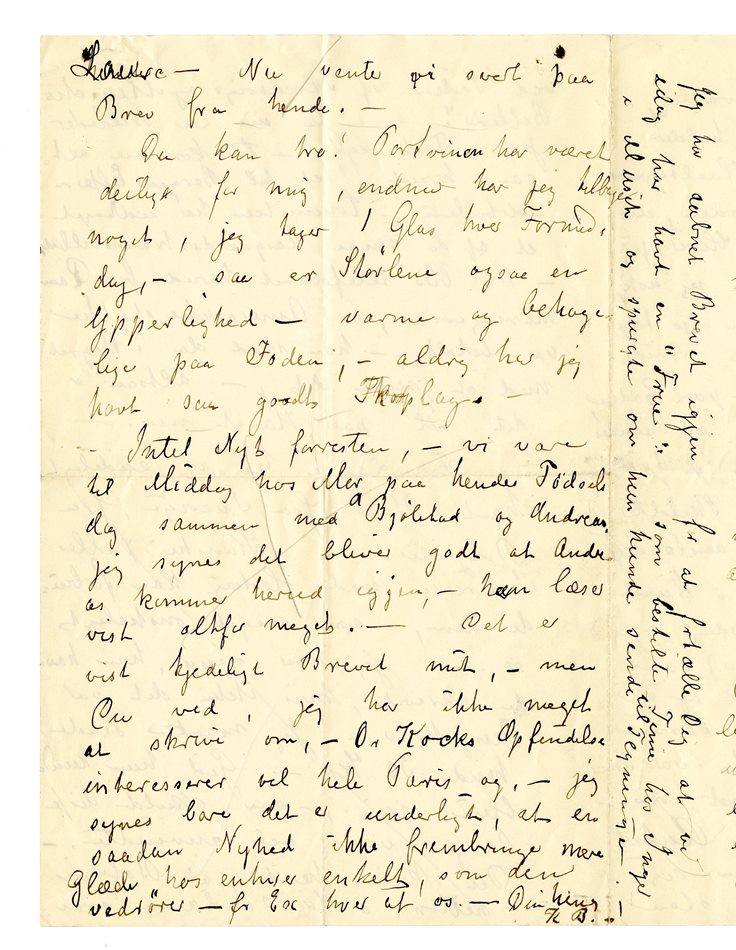 Laura — Nu vente vi svert paa
Brev fra hende. —
Du kan tro! Portvinen har været
deilig for mig, endnu har jeg tilbage
noget, jeg tager 1 Glas hver Formid-
dag, — saa er Størlene ogsaa en
Ypperlighed — varme og behage-
lige paa Foden, — aldrig har jeg
havt saa godt —
— Intet Nyt forresten, — vi vare
til Middag hos Mor paa hendes Fødsels
dag sammen med Bjølstad og Andreas,
jeg synes det bliver godt at Andre-
as kommer herud igjen, — han læser
vist altfor meget. — Det er
vist kjedeligt Brevet mit, — men
Du ved, jeg har ikke meget
at skrive om, — Dr Kocks Opfindelse
interesserer vel hele Paris og, — jeg
synes bare det er underligt, at en
saadan Nyhed ikke frembringe mere
Glæde hos enhver enkelt, som den
vedrører — fr Ex hver af os. — Din heng
K B. —
Jeg har aabnet Brevet igjen for at fortælle Dig at vi
idag har havt en "Frue" som bestilte Time hos Inger
i Musik og spurgte om hun kunde sende Tegninger. —
til